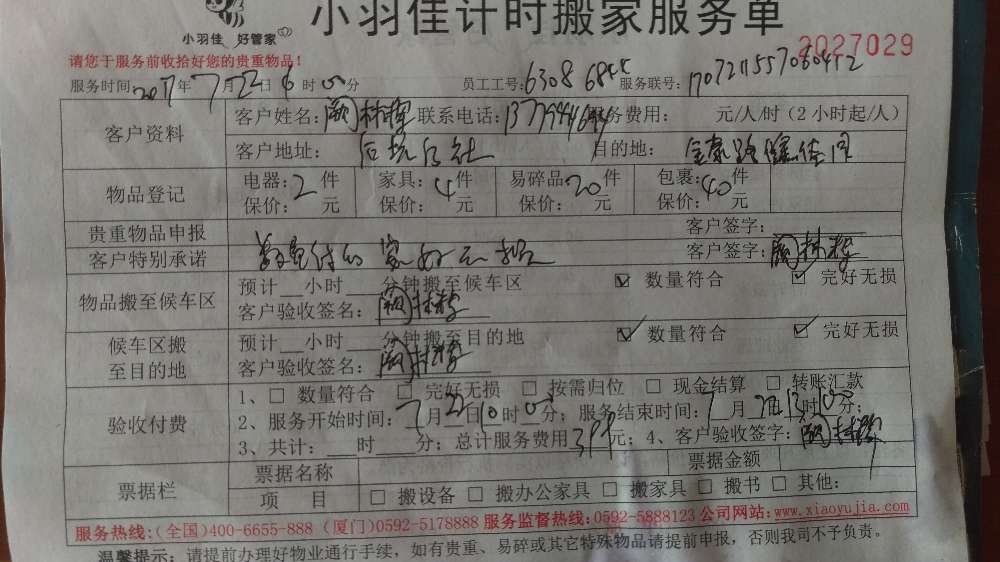 小羽佳计时搬家服务单
小羽佳 好管家
2027029
请您于服务前收拾好您的贵重物品!
服务时间: 2017年7月22日 时00分 员工工号:6308 6844 服务联号:
客户资料 客户姓名: 林 联系电话: 服务费用: 元/人/时(2小时起/人)
客户地址: 后坑后社 目的地:
物品登记 电器:2件 家具:4件 易碎品20件 包裹:40件
保价: 元 保价: 元 保价: 元 保价: 元
贵重物品申报 客户签字:
客户特别承诺 客户签字:
物品搬至候车区 预计__小时__分钟搬至候车区 ☑ 数量符合 ☑ 完好无损
客户验收签名:
候车区搬至目的地 预计__小时__分钟搬至目的地 ☑ 数量符合 ☑ 完好无损
客户验收签名:
验收付费 1、□ 数量符合 □ 完好无损 □ 按需归位 □ 现金结算 □ 转账汇款
2、服务开始时间:7月22日10时00分; 服务结束时间:7月 日13时00分;
3、共计:___时___分; 总计服务费用 元; 4、客户验收签字:
票据栏 票据名称 票据金额
项 目 □ 搬设备 □ 搬办公家具 □ 搬家具 □ 搬书 □ 其他:
服务热线:(全国)400-6655-888 (厦门)0592-5178888 服务监督热线:0592-5888123 公司网站:www.xiaoyujia.com
温馨提示: 请提前办理好物业通行手续, 如有贵重、易碎或其它特殊物品请提前申报, 否则我司不予负责。